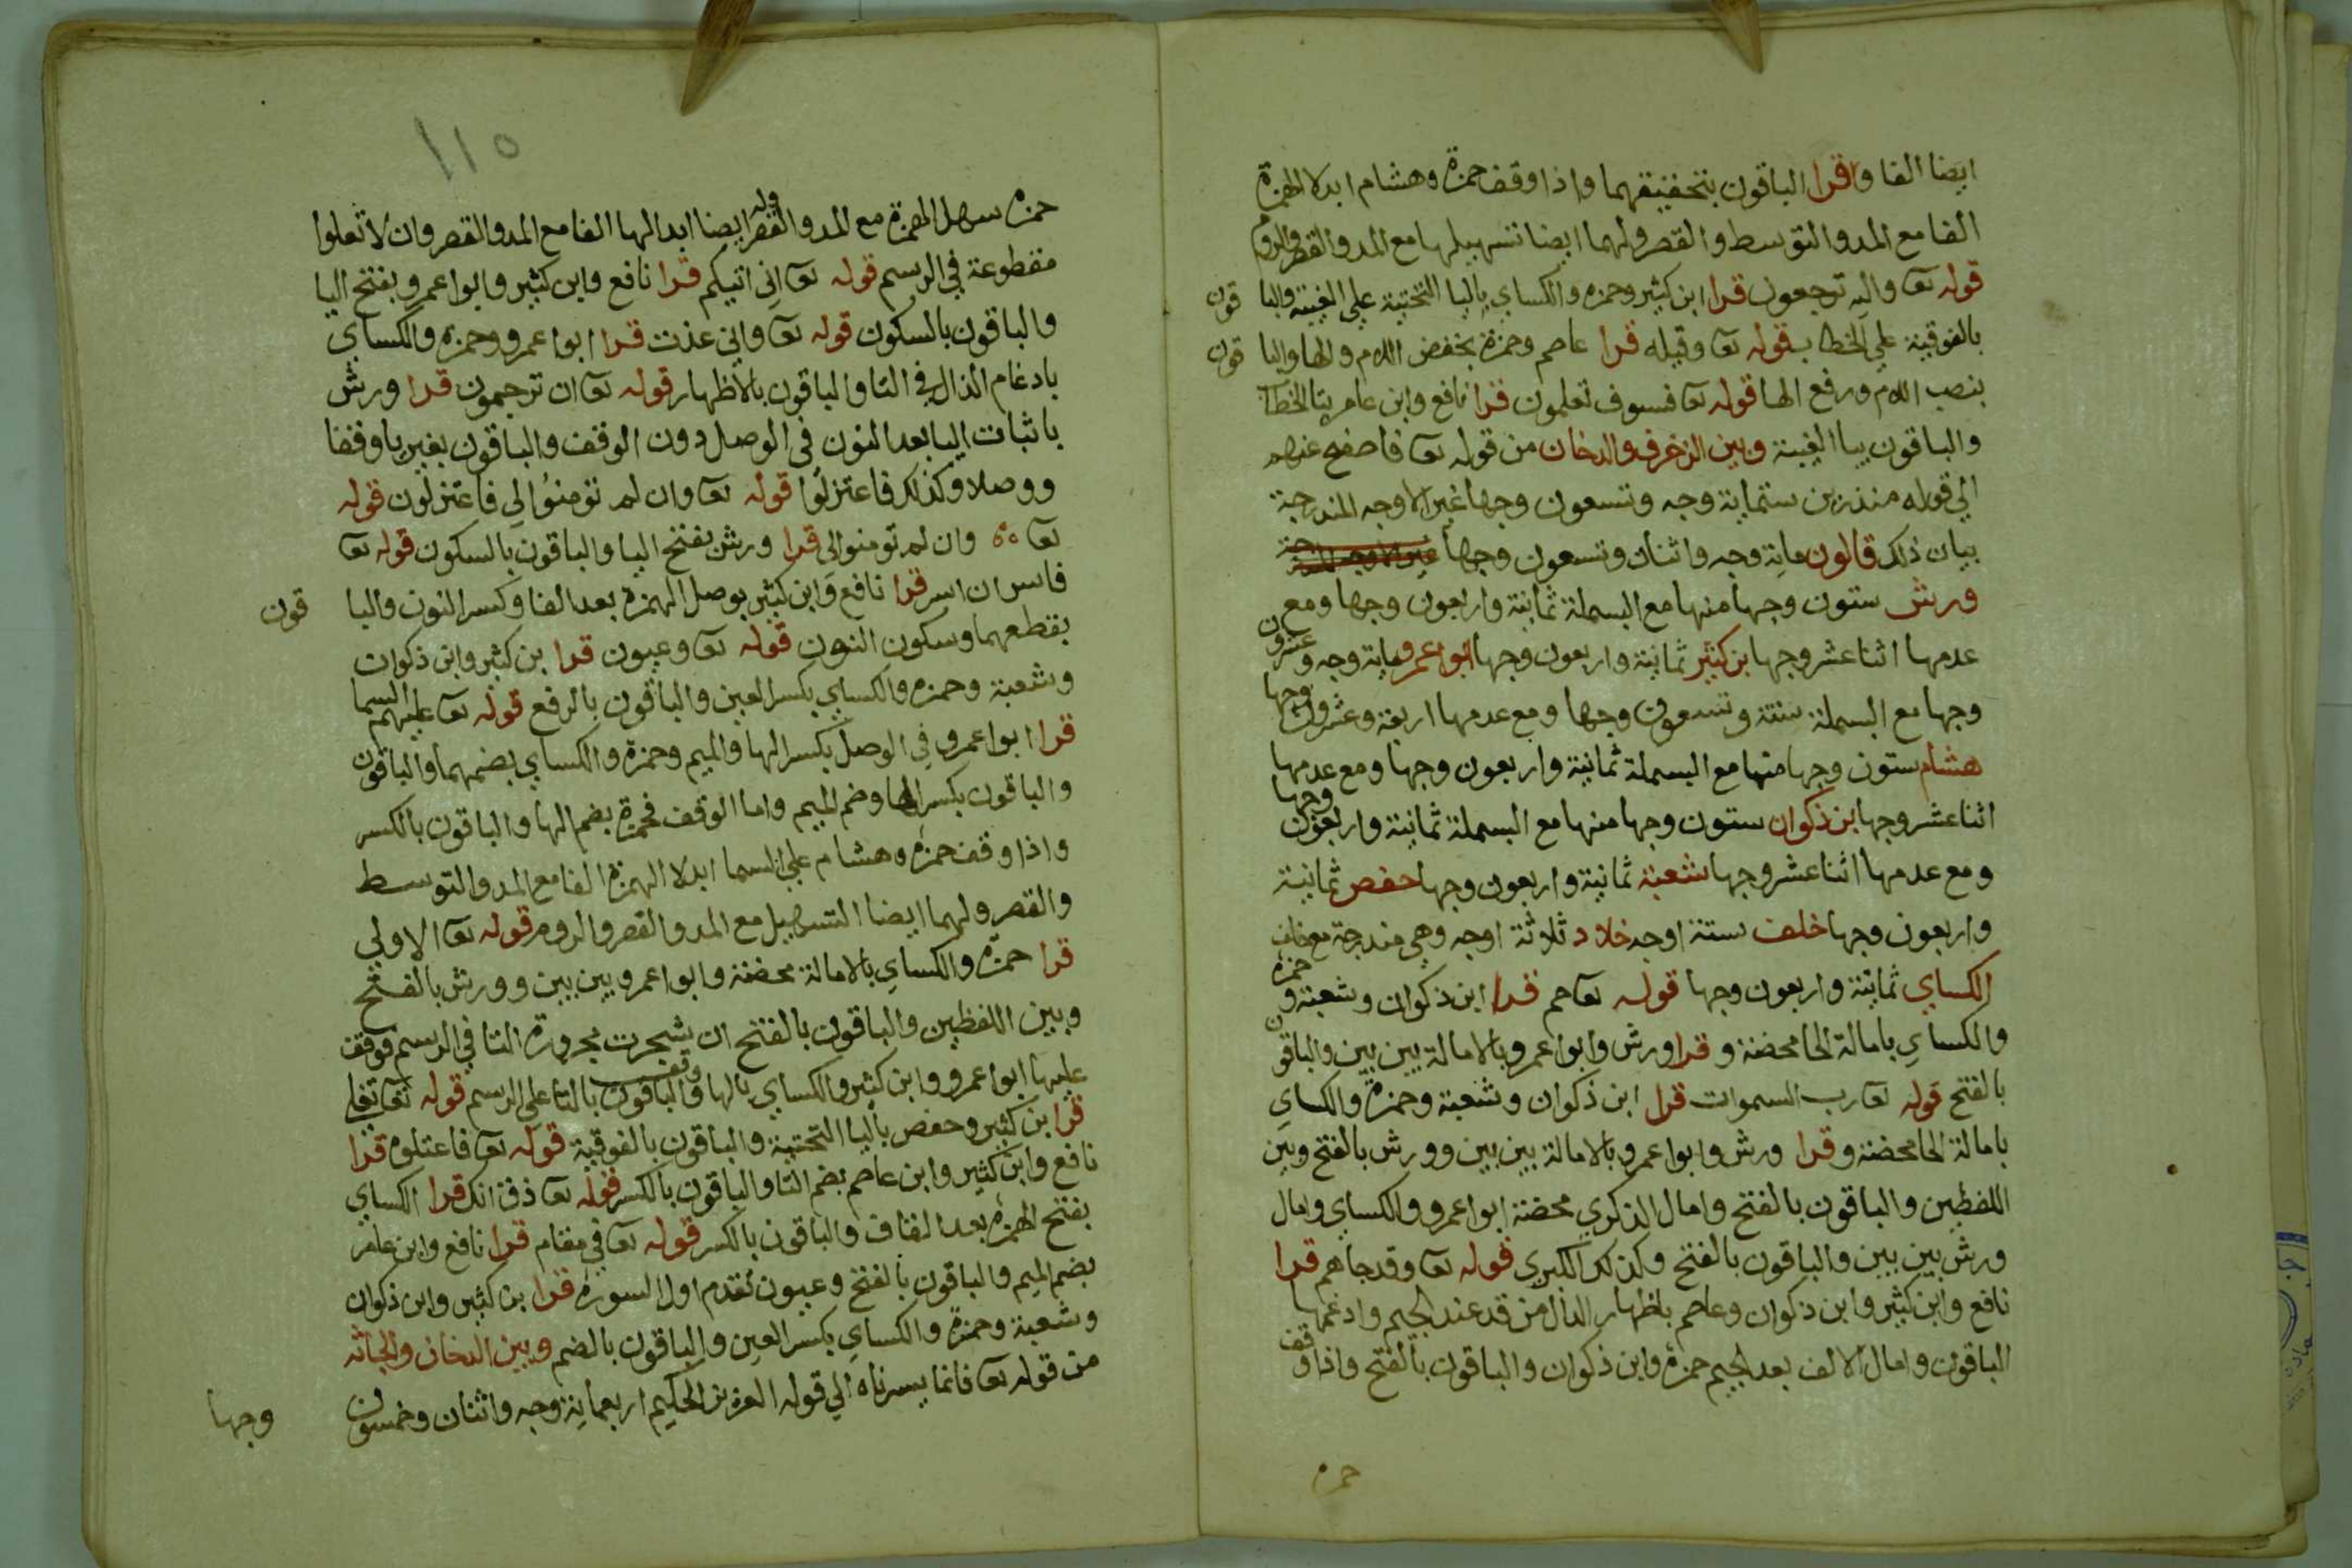 ايضا الفا واقرا الباقون بتحقيقهما واذا وقف حمزة وهشام ابدلا الهمزة
الفا مع المد والتوسط والقصر ولهما ايضا تسهيلها مع المد والقصر والروم
قوله تعا واليه ترجعون قرا ابن كثير وحمزه والكساي باليا التحتية علي الغيبة والبا قون
بالفوقية علي الخطاب قوله تعا وقيله قرا عاصم وحمزة بخفض اللام والها والبا قون
بنصب اللام ورفع الها قوله تعا فسوف تعلمون قرا نافع وابن عامر بتا الخطا
والباقون بيا الغيبة وبين الزخرف والدخان من قوله تعا فاصفح عنهم
الي قوله منذرين ستماية وجه وتسعون وجها غير الاوجه المندرجة
بيان ذلك قالون ماية وجه واثنان وتسعون وجها
ورش ستون وجها منها مع البسملة ثمانية واربعون وجها ومع
عدمها اثنا عشر وجها بن كثير ثمانية واربعون وجها ابو اعمرو ماية وجه وعشرون
وجها مع البسملة ستة وتسعون وجها ومع عدمها اربعة وعشرون وجها
هشام ستون وجها منها مع البسملة ثمانية واربعون وجها ومع عدمها
اثنا عشر وجها بن ذكوان ستون وجها منها مع البسملة ثمانية واربعون وجها
ومع عدمها اثنا عشر وجها شعبة ثمانية واربعون وجها حفص ثمانية
واربعون وجها خلف ستة اوجه خلاد ثلاثة اوجه وهي مندرجة مع خلف
الكساي ثمانية واربعون وجها قوله تعا حم قرا ابن ذكوان وشعبة وحمزه
والكساي بامالة الحا محضة وقرا ورش وابوا عمرو بالامالة بين بين والباقون
بالفتح قوله تعا رب السموات قرا ابن ذكوان وشعبة وحمزة والكساي
بامالة الحا محضة وقرا ورش وابوا عمرو بالامالة بين بين وورش بالفتح وبين
اللفظين والباقون بالفتح وامال الذكري محضة ابوا عمرو والكساي وامال
ورش بين بين والباقون بالفتح وكذلك الكبري قوله تعا وقد جاهم قرا
نافع وابن كثير وابن ذكوان وعاصم باظهار الدال من قد عند الجيم وادغمها
الباقون وامال الالف بعد الجيم حمزة وابن ذكوان والباقون بالفتح واذا وقف
حمزه
١١٥
حمزه سهل الهمزة مع المد والقصر وله ايضا ابدالها الفا مع المد والقصر وان لا تعلوا
مقطوعة في الرسم قوله تعا اني اتيكم قرا نافع وابن كثير وابوا عمرو بفتح اليا
والباقون بالسكون قوله تعا واني عذت قرا ابوا عمرو وحمزه والكساي
بادغام الذال في التا والباقون بالاظهار قوله تعا ان ترجمون قرا ورش
باثبات اليا بعد النون في الوصل دون الوقف والباقون بغير يا وقفا
ووصلا وكذلك فاعتزلوا قوله تعا وان لم تومنوا لي فاعتزلون قوله
تعا وان لم تومنوا لي قرا ورش بفتح اليا والباقون بالسكون قوله تعا
فاسر ان اسر قرا نافع وابن كثير بوصل الهمزة بعد الفا وكسر النون والبا قون
بقطعهما وسكون النون قوله تعا وعيون قرا بن كثير وابن ذكوان
وشعبة وحمزه والكساي بكسر العين والباقون بالرفع قوله تعا عليهم السما
قرا ابوا عمرو في الوصل بكسر الها والميم وحمزة والكساي بضمهما والباقون
والباقون بكسر الها وضم الميم واما الوقف فحمزة بضم الها والباقون بالكسر
واذا وقف حمزة وهشام علي السما ابدلا الهمزة الفا مع المد والتوسط
والقصر ولهما ايضا التسهيل مع المد والقصر والروم قوله تعا الاولي
قرا حمزة والكساي بالامالة محضة وابوا عمرو بين بين وورش بالفتح
وبين اللفظين والباقون بالفتح ان شجرت مجرورة التا في الرسم فوقف
عليها ابوا عمرو وابن كثير والكساي بالها ووقف الباقون بالتا علي الرسم قوله تعا تغلي
قرا ابن كثير وحفص باليا التحتية والباقون بالفوقية قوله تعا فاعتلوه قرا
نافع وابن كثير وابن عاصم بضم التا والباقون بالكسر قوله تعا ذق انك قرا الكساي
بفتح الهمزة بعد القاف والباقون بالكسر قوله تعا في مقام قرا نافع وابن عامر
بضم الميم والباقون بالفتح وعيون تقدم اول السورة قرا بن كثير وابن ذكوان
وشعبة وحمزة والكساي بكسر العين والباقون بالضم وبين الدخان والجاثه
من قوله تعا فانما يسرناه الي قوله العزيز الحكيم اربعماية وجه واثنان وخمسون
وجها